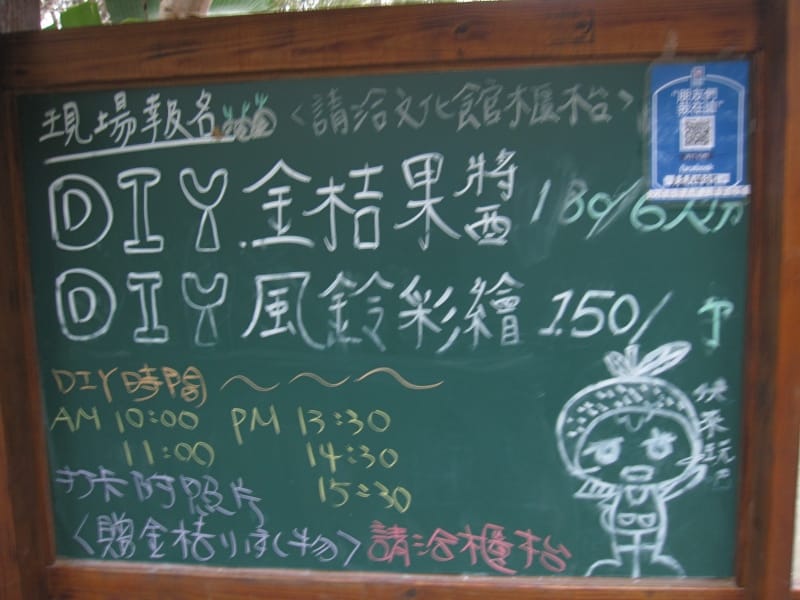 現場報名 <請洽文化館櫃枱>
DIY 金桔果將 西 180/6人份
DIY 風鈴彩繪 150/
DIY時間
AM 10:00 PM 13:30
11:00 14:30
15:30
打卡附照片
<贈金桔小 物> 請洽櫃枱
快來玩吧
"朋友們
我在這"